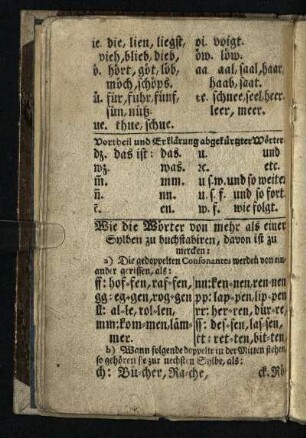 ie. die, lien, liegst, oi. voigt.
vieh, blieb, dieb, öw. löw.
ö. hört, göt, löb, aa aal, saal, haar,
möch, schöps. haab, saat.
ü. für, fuhr, fünf, ee. schnee, seel, heer,
sün, nütz. leer, meer.
ue. thue, schue.
Vortheil und Erklärung abgekürgter Wörter
dz. das ist: das. u. und
wz. was. ꝛc. etc.
m̄. mm. u s.w. und so weiter
n̄. nn. u. s. f. und so fort.
ē. en. w. f. wie folgt.
Wie die Wörter von mehr als einer
Sylben zu buchstabiren, davon ist zu
mercken:
a) Die gedoppelten Consonantes werden von ein-
ander gerissen, als:
ff: hof-fen, raf-fen, nn: ken-nen, ren-nen
gg: eg-gen, rog-gen pp: lap-pen, lip-pen
ll: al-le, rol-len, rr: her-ren, dür-re
mm: kom-men, läm- ss: des-sen, las-sen,
mer. tt: ret-ten, bit-ten,
b) Wann folgende doppelte in der Mitten stehen,
so gehören sie zur nechsten Sylbe, als:
ch: Bü-cher, Ra-che, ck. Rö